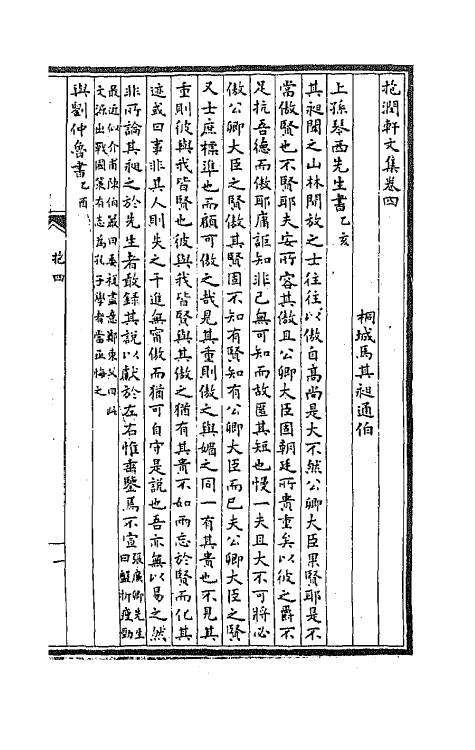 抱潤軒文集卷四
桐城馬其昶通伯
上孫琴西先生書乙亥
其昶聞之山林閒放之士往往以傲自高尚是大不然公卿大臣果賢耶是不
當傲賢也不賢耶夫安所容其傲且公卿大臣固朝廷所貴重矣以彼之爵不
足抗吾德而傲耶庸詎知非己無可知而故匿其短也慢一夫且大不可將必
傲公卿大臣之賢傲其賢固不知有賢知有公卿大臣而已夫公卿大臣之賢
又士庶標準也而顧可傲之哉見其重則傲之與媚之同一有其貴也不見其
重則彼與我皆賢也彼與我皆賢與其傲之猶有其貴不如兩忘於賢而化其
迹或曰事非其人則失之干進無甯傲而猶可自守是說也吾亦無以易之然
非所論其昶之於先生者敢錄其說以獻於左右惟垂鑒焉不宣張廉卿先生
曰盤折瘦勁
最近似介甫陳伯嚴曰委視盡意鄭東父曰此
文源出戰國策有志為孔子學者當亟悔之
與劉仲魯書乙酉
抱四
一